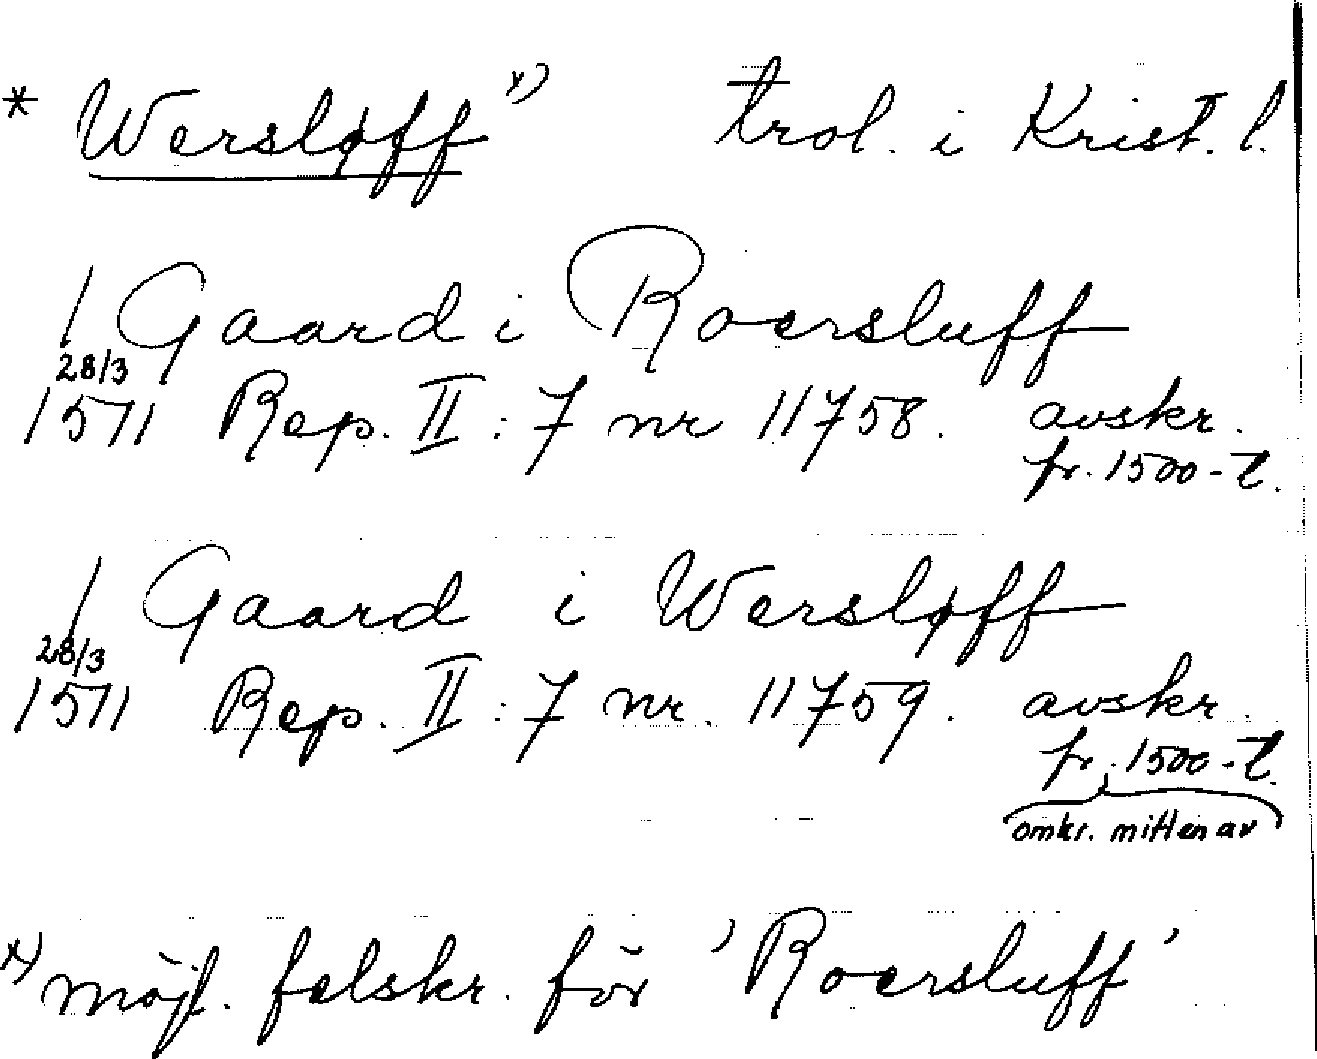 * Wersløff x) trol. i Krist. l.
1 Gaard i Roersluff
28/3
1571 Rep. II : 7 nr 11758. avskr.
fr. 1500-t.
1 Gaard i Wersløff
28/3
1571 Rep. II : 7 nr. 11759. avskr.
fr. 1500-t.
omkr. mitten av
x) möjl. felskr. för 'Roersluff'